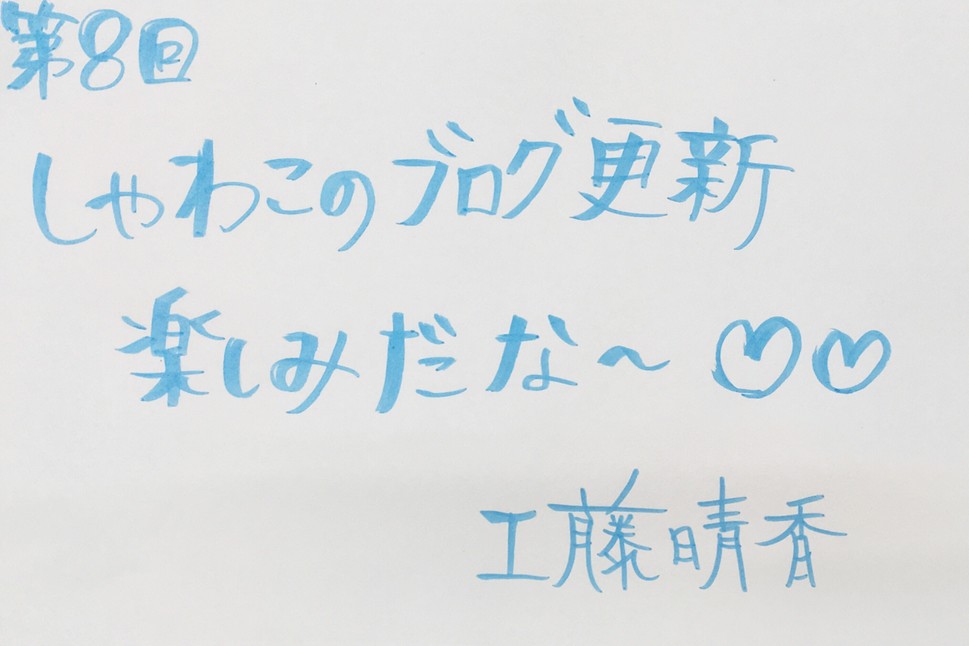 第8回
しゃわこのブログ更新
楽しみだな〜♡♡
工藤晴香